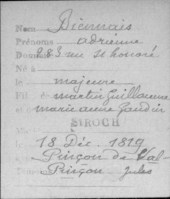 Nom Diemais
Prénoms adrienne
Dom 283 rue St honoré
Né à
majeure
Fil de martin Guillaume
et marie anne Gaudin
SIROCH
18 Déc. 1819
Pinçon de Val-
Pinçon Jules